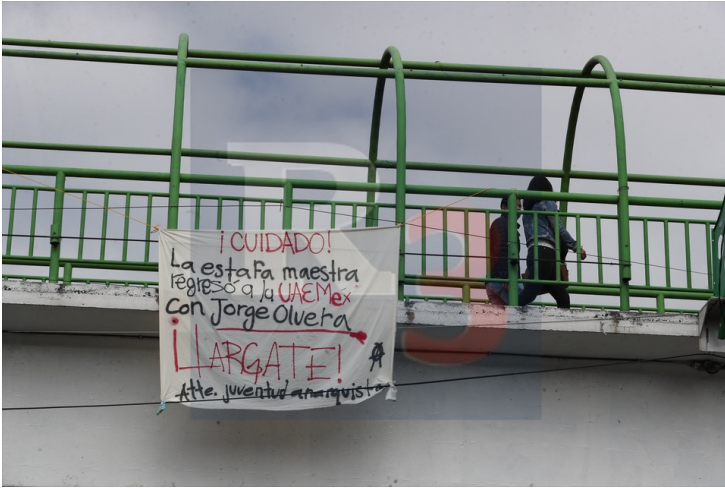 ¡CUIDADO!
La estafa maestra
regreso a la UAEMex
con Jorge Olvera
¡LARGATE!
Atte. juventud anarquista
R3